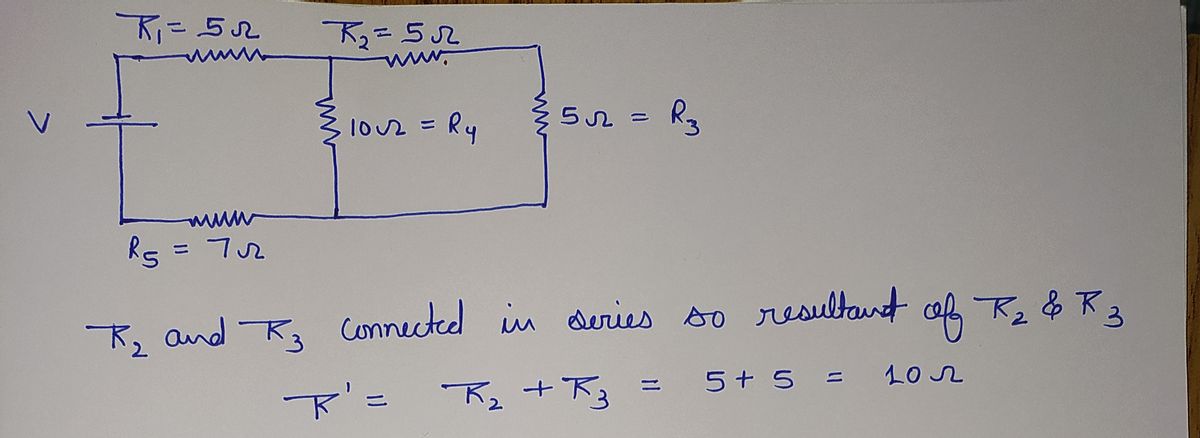 R₁ = 5Ω R₂ = 5Ω
V 10Ω = R₄ 5Ω = R₃
R₅ = 7Ω
R₂ and R₃ connected in series so resultant of R₂ & R₃
R' = R₂ + R₃ = 5 + 5 = 10Ω